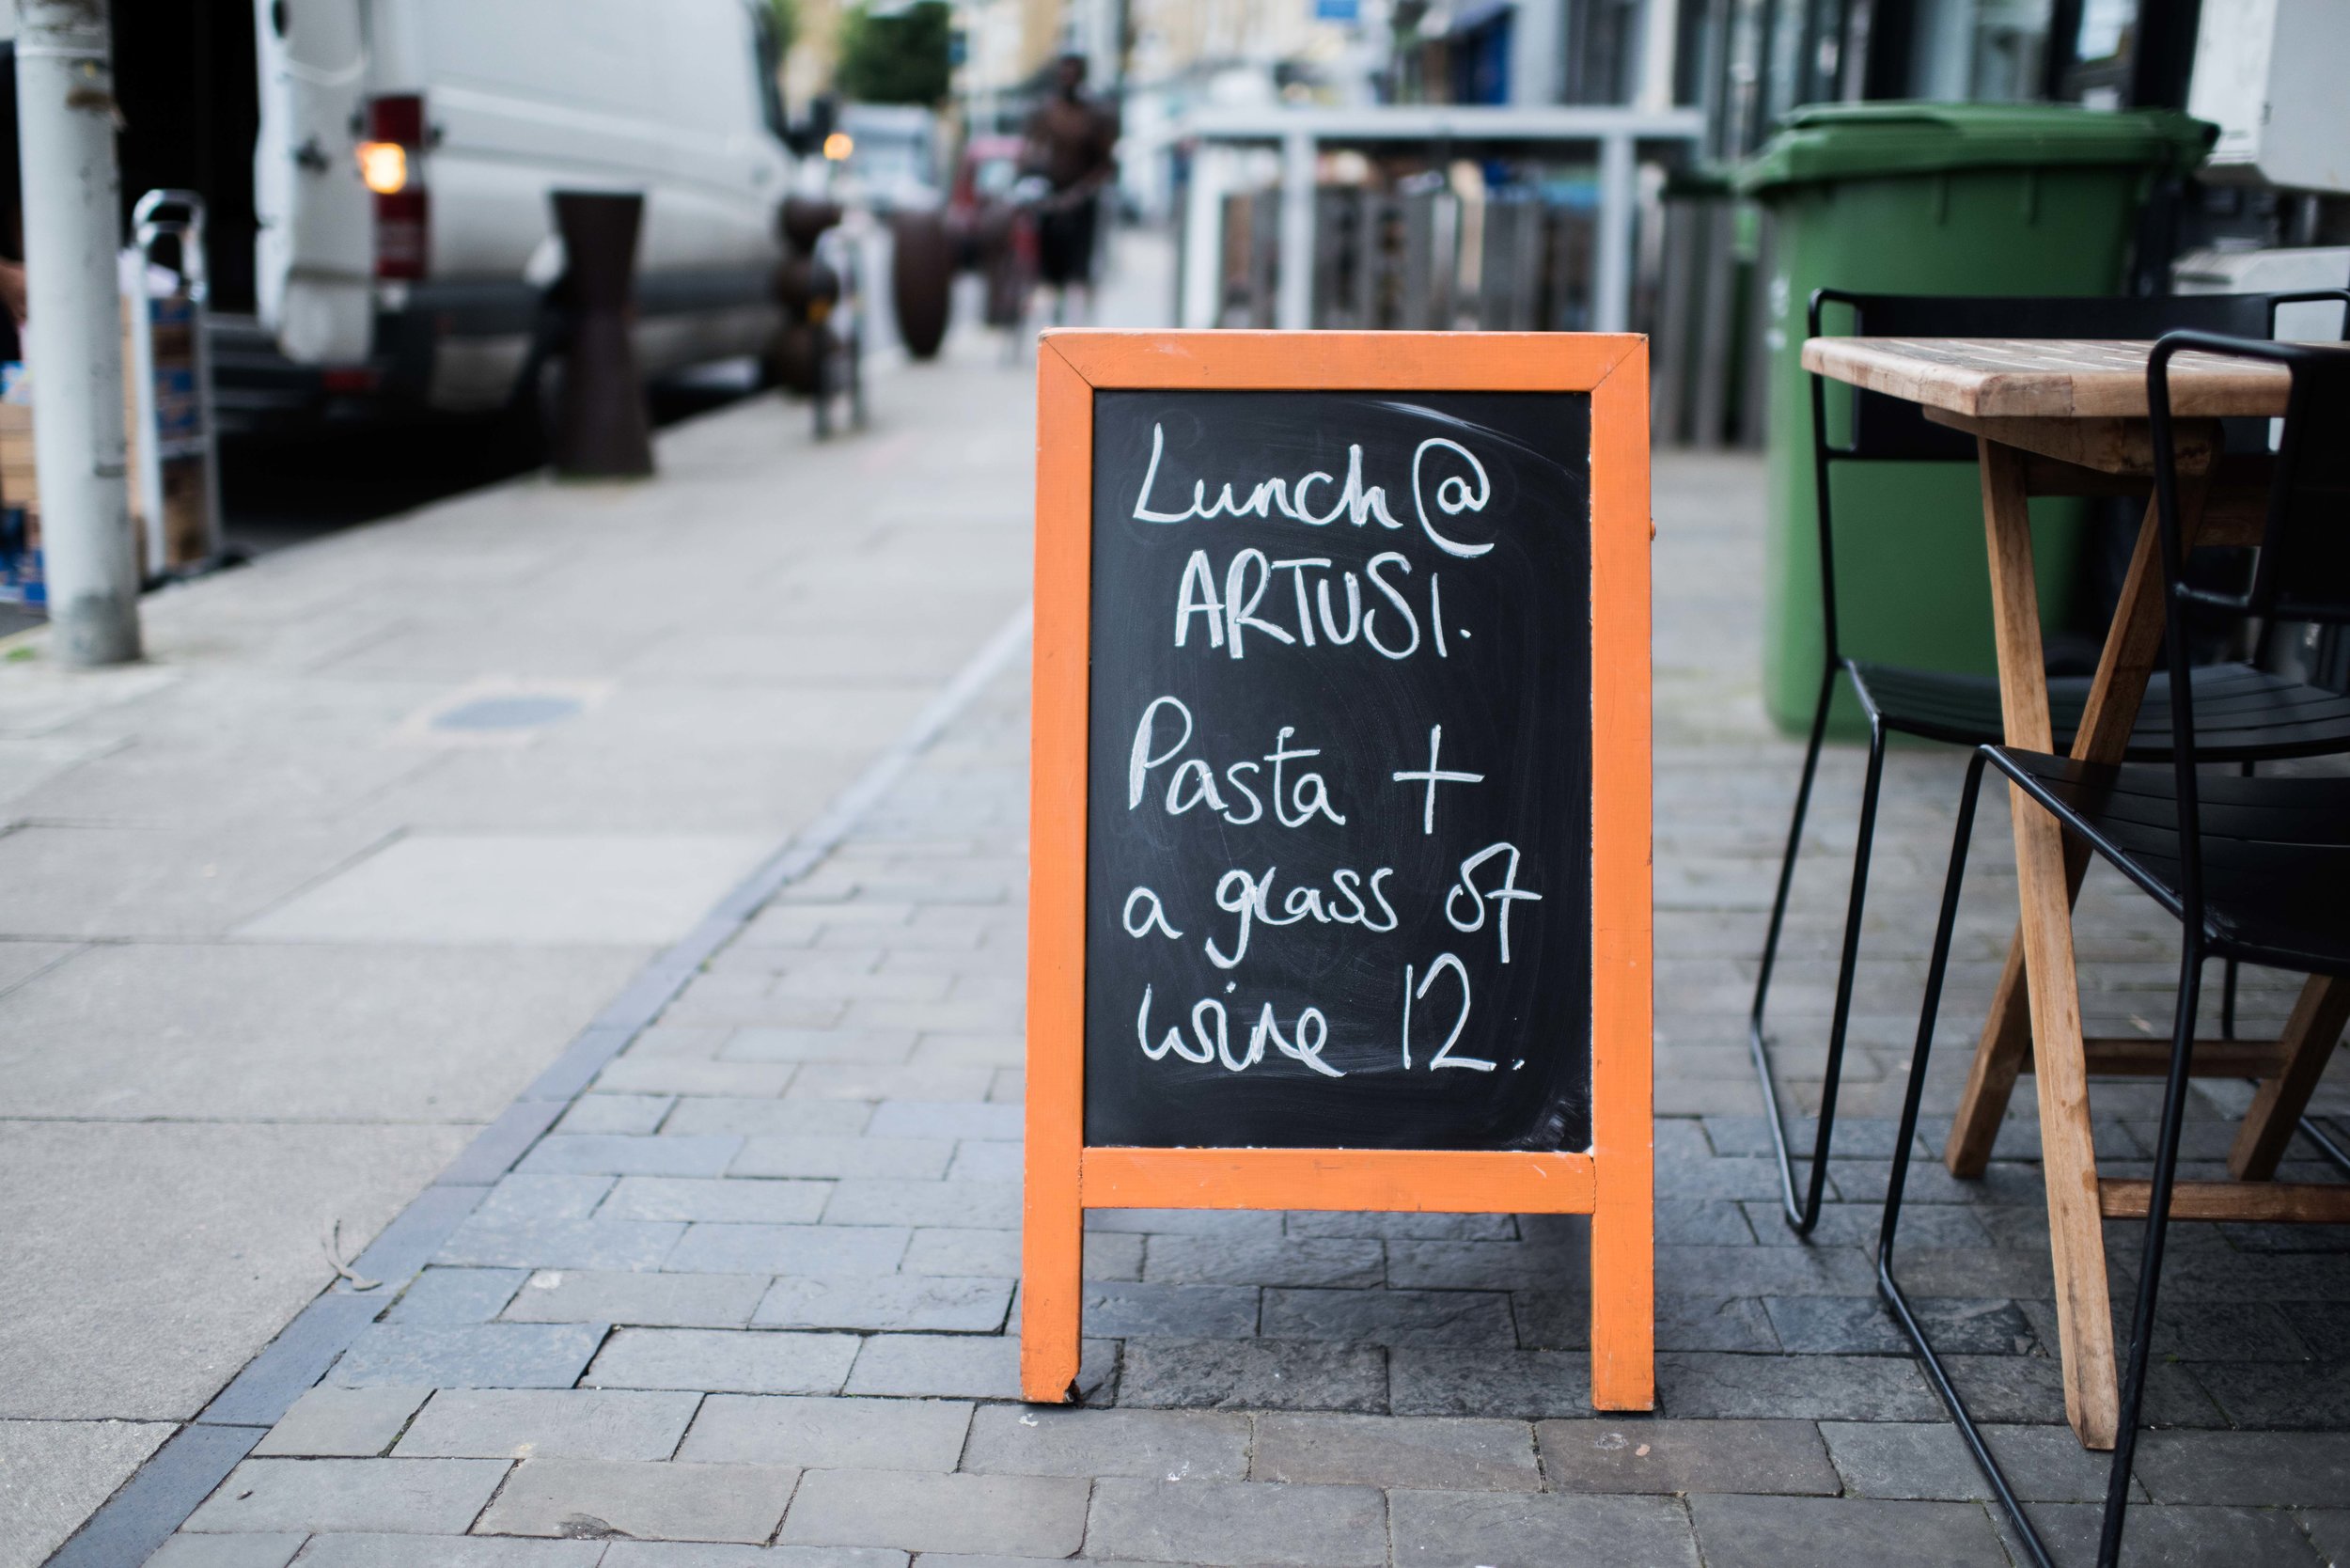 Lunch @
ARTUSI.
Pasta +
a glass of
wine 12.